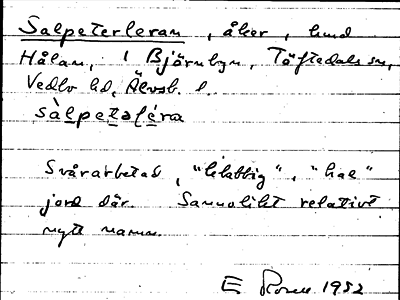 Salpeterleran, åker, hmd
Hålan, i Björnbyn, Töftedals sn,
Vedbo hd, Älvsb. l.
sàlpetəléra
Svårarbetad, "klabbig", "hal"
jord där. Sannolikt relativt
nytt namn.
E Rosén 1952